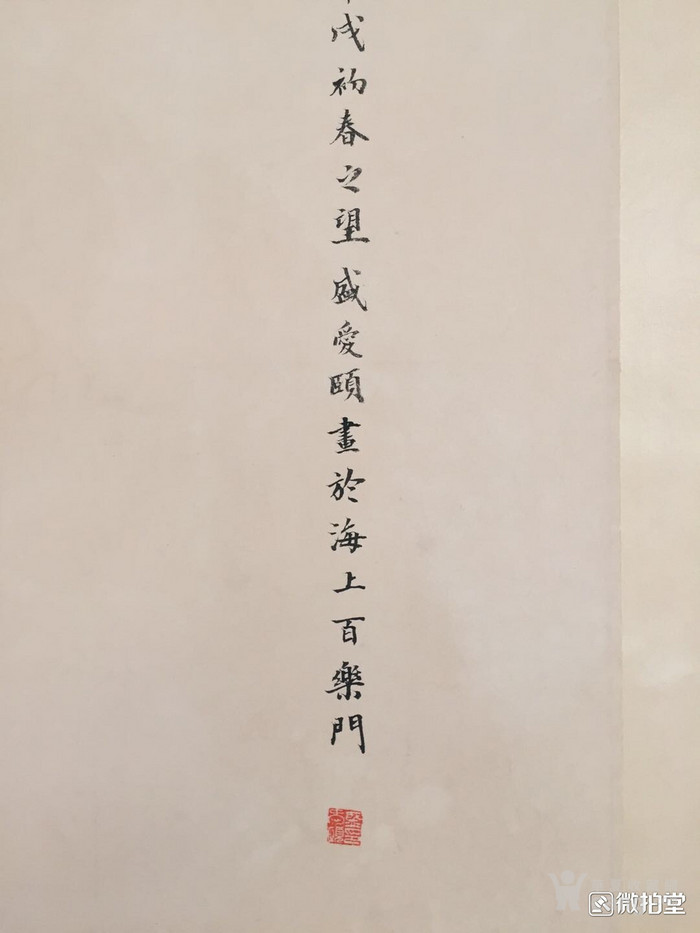 戌初春之望盛愛頤畫於海上百樂門
微拍堂